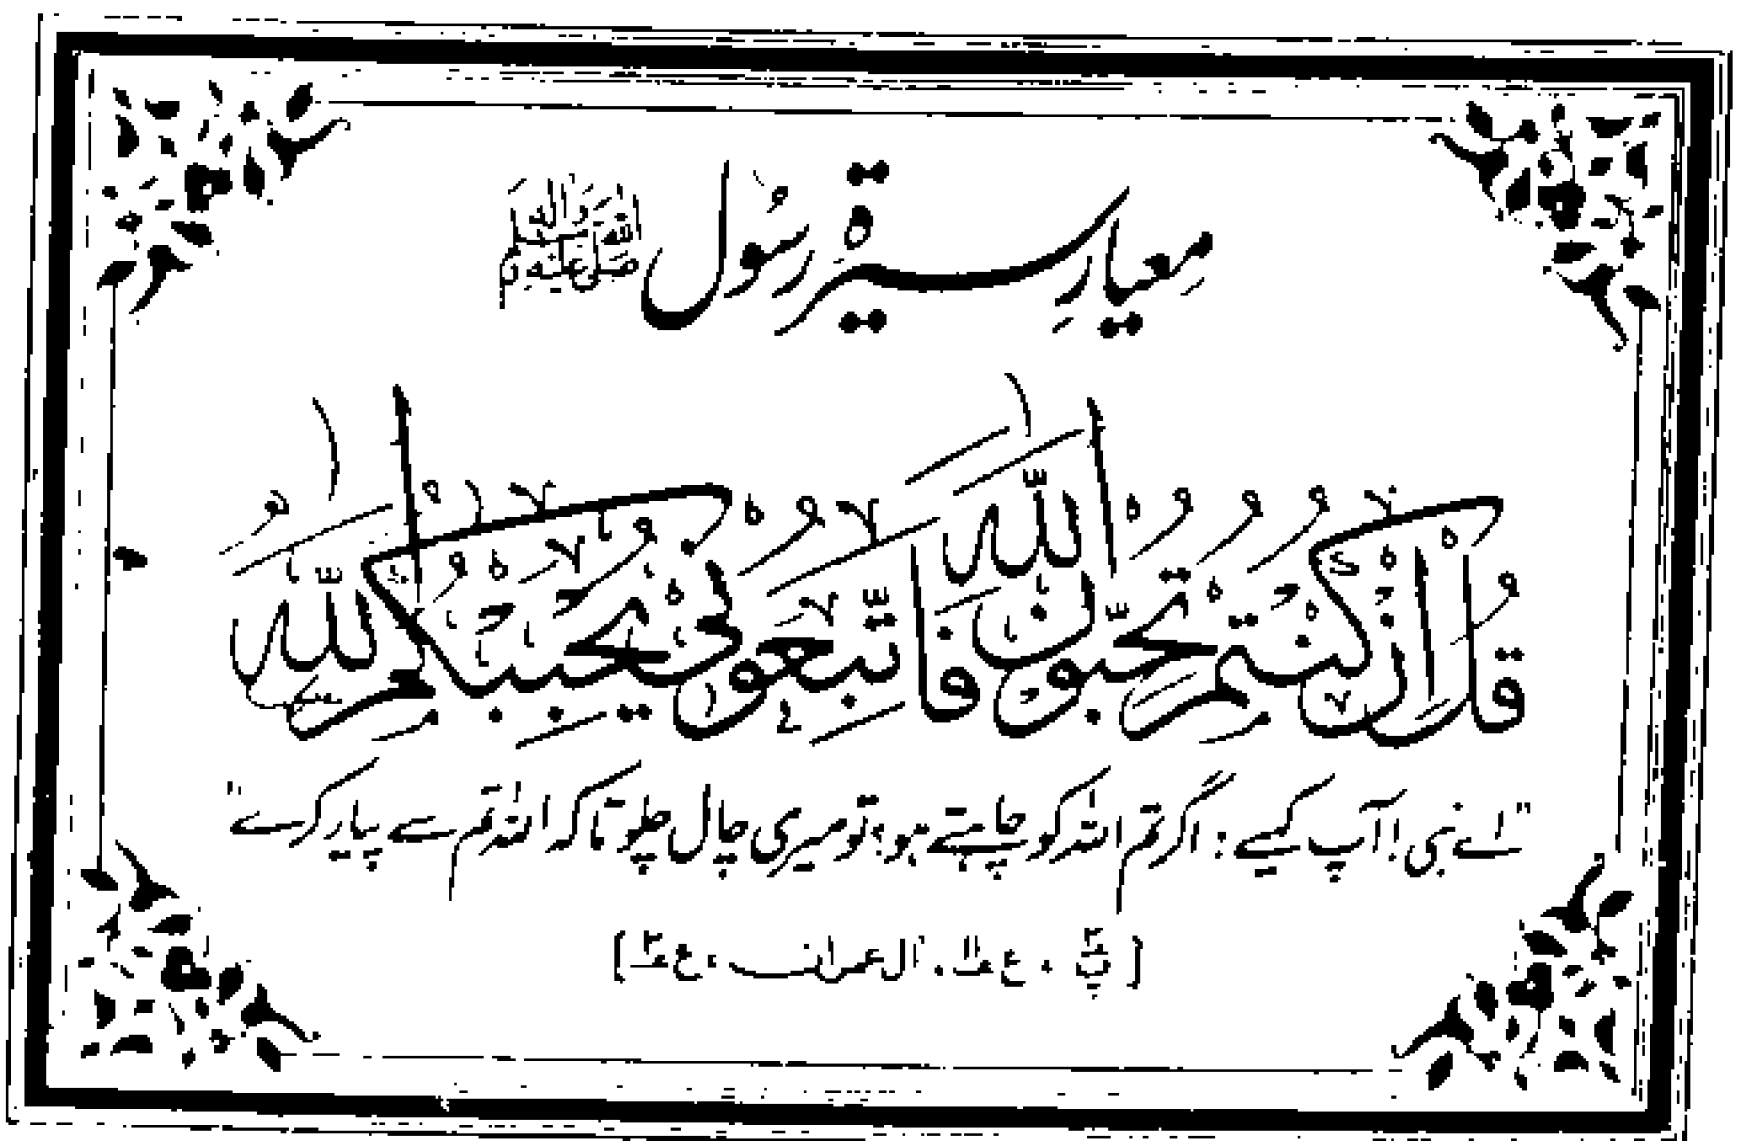 معیارِ سیرۃِ رسُول صَلَّی اللّٰہُ عَلَیْہِ وَاٰلِہٖ وَسَلَّم
قُلْ اِنْ كُنْتُمْ تُحِبُّوْنَ اللّٰهَ فَاتَّبِعُوْنِیْ یُحْبِبْكُمُ اللّٰهُ
"اے نبی! آپ کہیے: اگر تم اللہ کو چاہتے ہو؛ تو میری چال چلو تاکہ اللہ تم سے پیار کرے"
[پ۳، ع۱۲، آل عمران، ع۴]